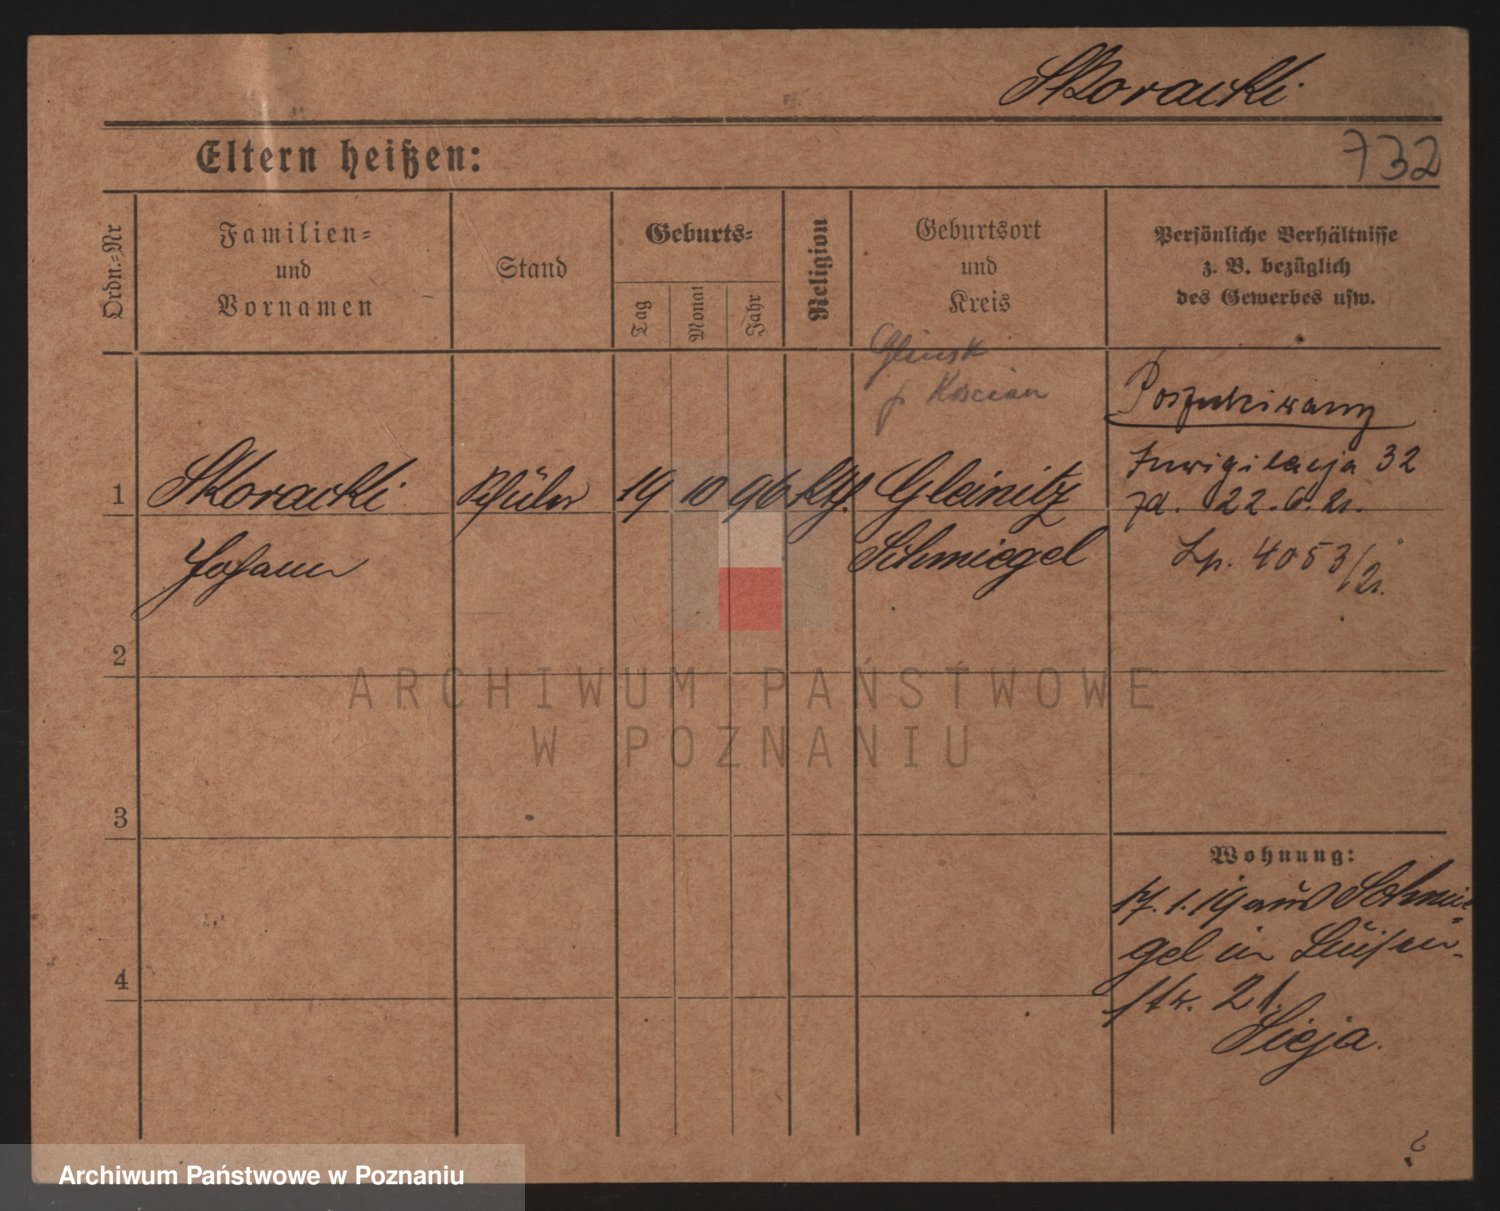 Skoracki
Eltern heißen:
732
Ordn.-Nr
Familien-
und
Vornamen
Stand
Geburts-
Tag
Monat
Jahr
Religion
Geburtsort
und
Kreis
Persönliche Verhältnisse
z. B. bezüglich
des Gewerbes usw.
Glinsk
p Koscian
Poszukiwany
Inwigilacja 32
1 Skoracki Schüler 19 10 96 kth. Gleinitz
za. 22.6.21.
Johann Schmiegel
Lp. 4053/21.
2
ARCHIWUM PAŃSTWOWE
W POZNANIU
3
Wohnung:
17.1.19 aus Schmie=
gel in Luisen-
4
str. 21.
Sieja.
Archiwum Państwowe w Poznaniu